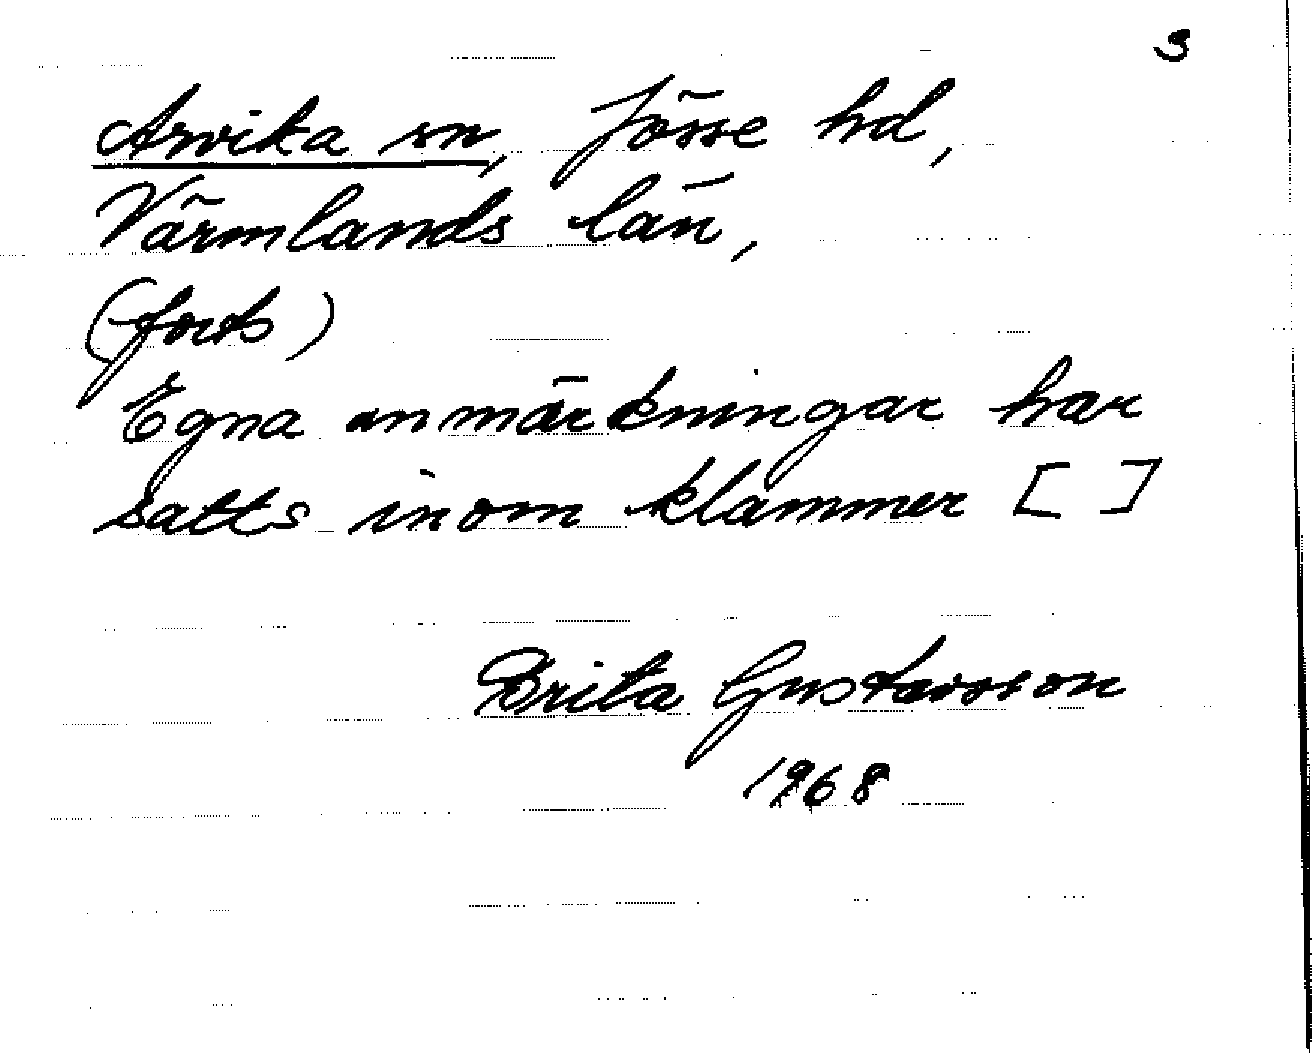 3
Arvika sn, Jösse hd,
Värmlands län,
(forts)
Egna anmärkningar har
satts inom klammer [ ]
Brita Gustavsson
1968